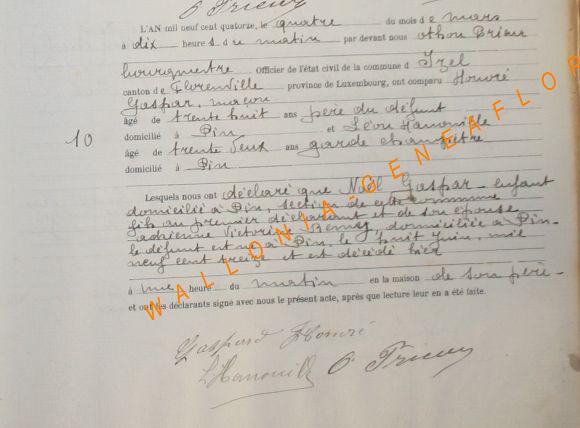 O Prieur
L'AN mil neuf cent quatorze, le quatre du mois de mars
à dix heures du matin par devant nous Othon Prieur
bourgmestre Officier de l'état civil de la commune d'Izel
canton de Florenville province de Luxembourg, ont comparu Honoré
Gaspar, maçon
âgé de trente huit ans père du défunt
domicilié à Pin et Léon Hanouille
âgé de trente deux ans garde champêtre
domicilié à Pin
10
Lesquels nous ont déclaré que Noël Gaspar enfant
domicilié à Pin, section de cette commune
fils du premier déclarant et de son épouse
Adrienne Victorine Remy, domiciliée à Pin.
le défunt est né à Pin, le huit juin, mil
neuf cent treize et est décédé hier
à une heure du matin en la maison de son père
et ont les déclarants signé avec nous le présent acte, après que lecture leur en a été faite.
Gaspard Honoré
L Hanouille O Prieur
WALLONIA-GENEAFLOR